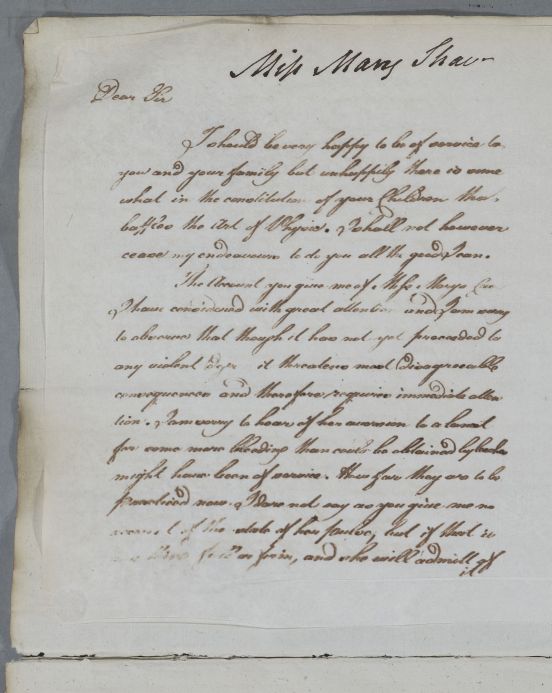 Miss Mary Shaw
Dear Sir
I should be very happy to be of service to
you and your family but unhappily there is some
what in the constitution of your Children that
baffles the Art of Physic. I shall not however
cease my endeavours to do you all the good I can.
The Account you give me of Miss Marys
I have considered with great attention and I am sorry
to observe that though it has not yet proceeded to
any violent it threatens most disagreeable
consequences and therefore requires immediate atten
tion. I am sorry to hear of her aversion to a lancet
for some more bleeding than could be obtained by leeches
might have been of service. How far they are to be
practiced now I dare not say as you give me no
account of the state of her pulse, but if that is
or firm, and she will admitt of
it